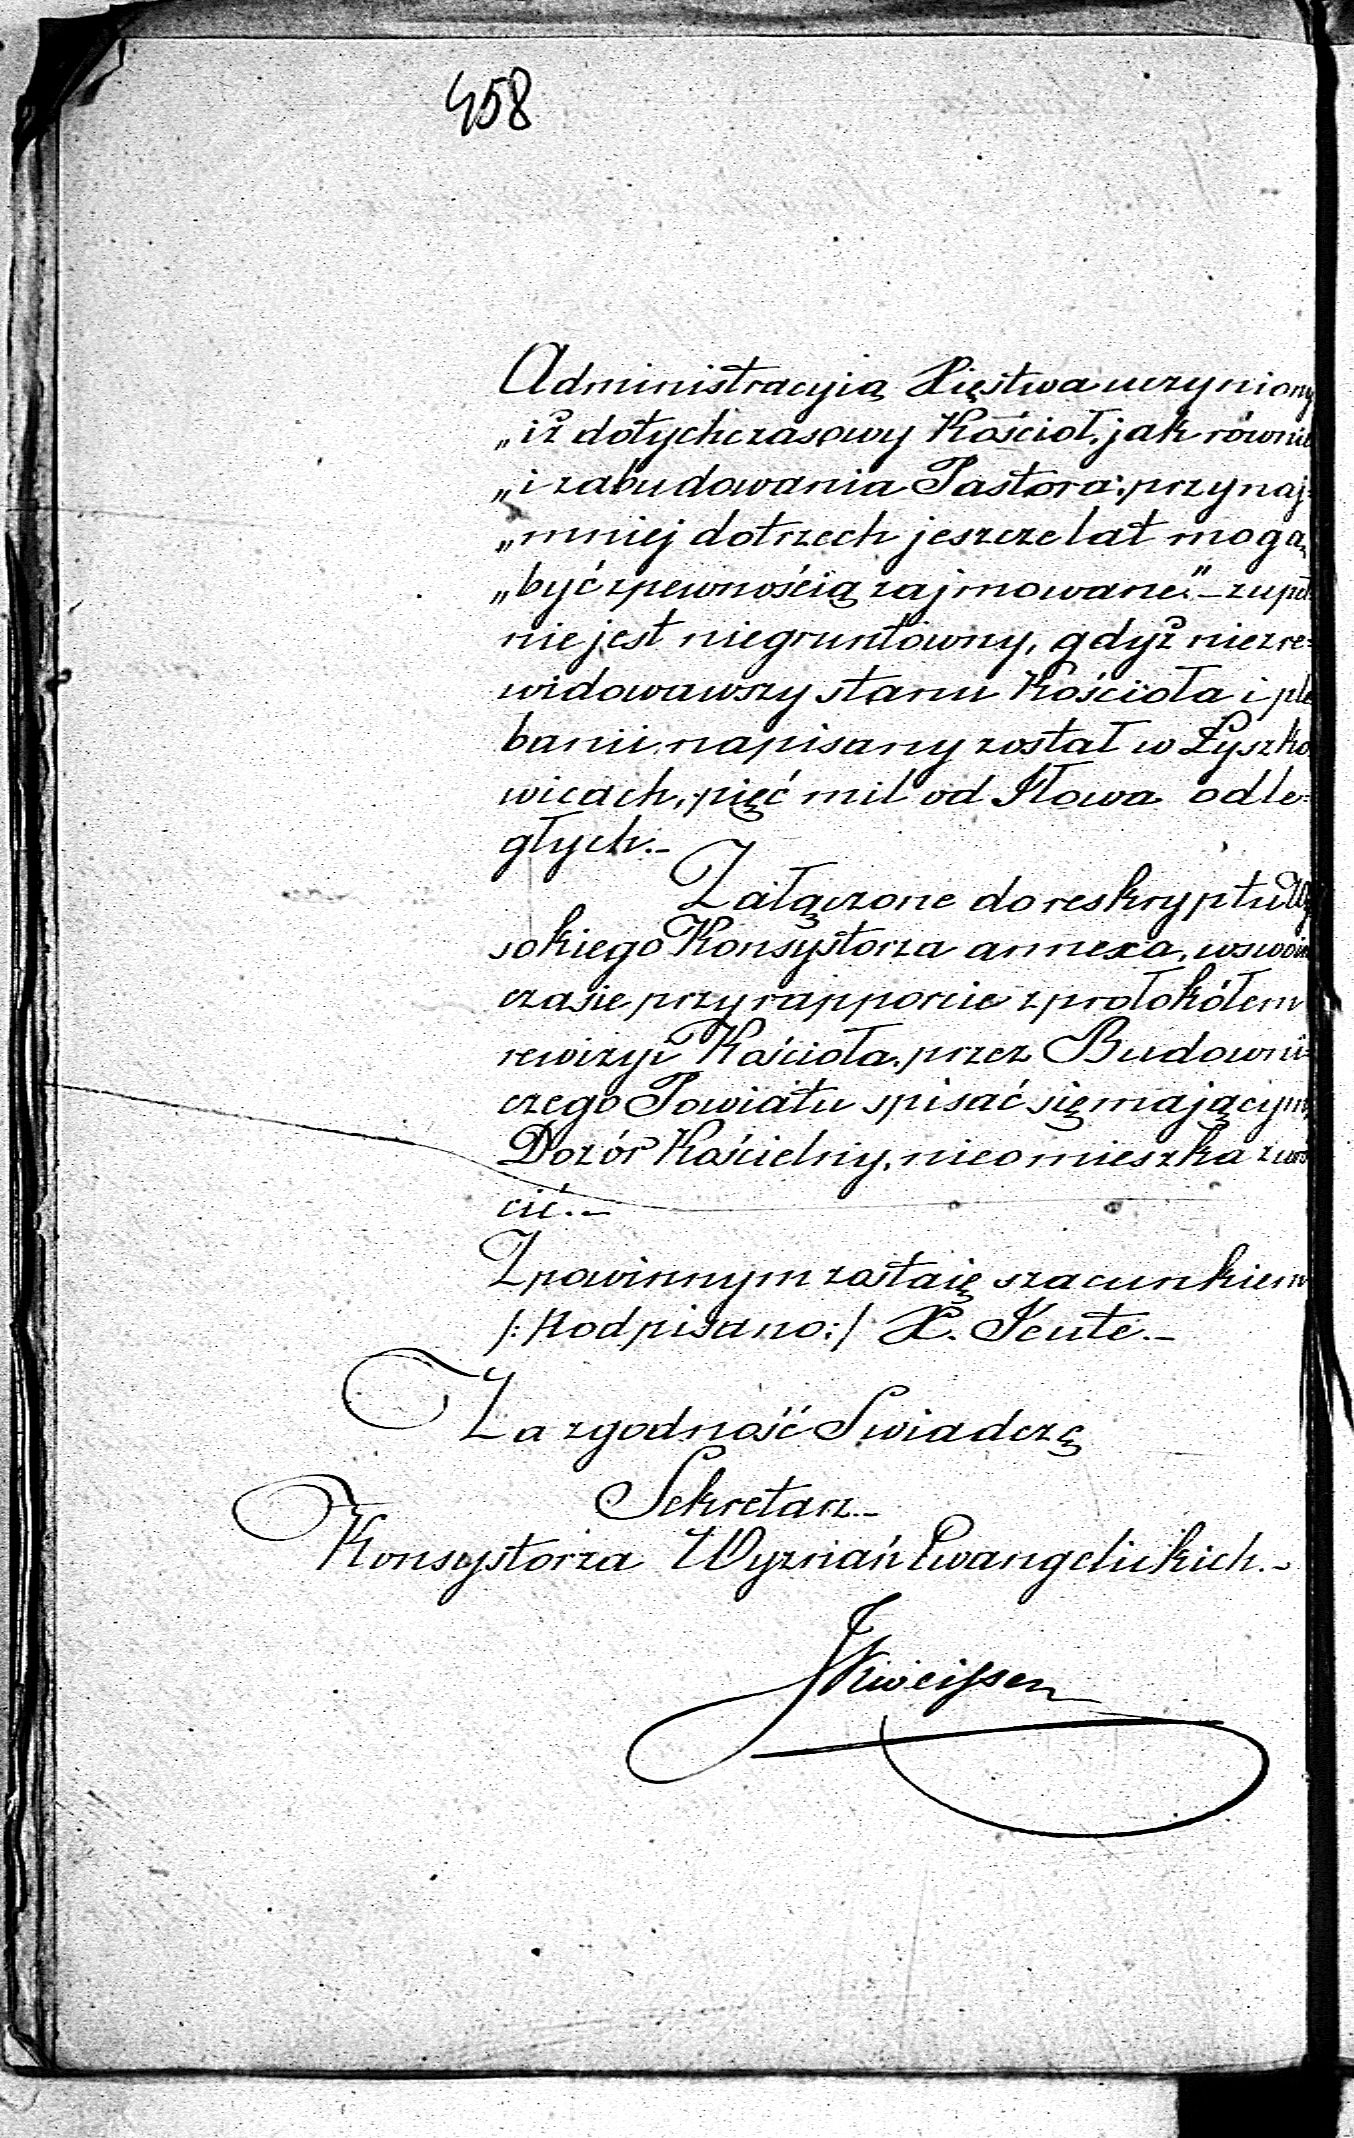 458
Administracyią Xięstwa uczyniony
„iż dotychczasowy Kościoł, jak równie
„i zabudowania Pastora, przynaj=
„mniej do trzech jeszcze lat mogą
„być z pewnością zajmowane." – zupeł
nie jest niegruntowny, gdyż nie zre=
widowawszy stanu Kościoła i ple
banii, napisany został w Łyszko
wicach, pięć mil od Iłowa odle=
głych. –
Załączone do reskryptu Wy
sokiego Konsystorza annexa, w swoim
czasie przy rapporcie z protokółem
rewizyi Kościoła, przez Budowni=
czego Powiatu spisać się mającym,
Dozór Kościelny, nieomieszka zwró
cić. –
Z powinnym zostaię szacunkiem
/: Podpisano :/ X. Teute. –
Za zgodność Swiadczę
Sekretarz. –
Konsystorza Wyznań Ewangelickich. –